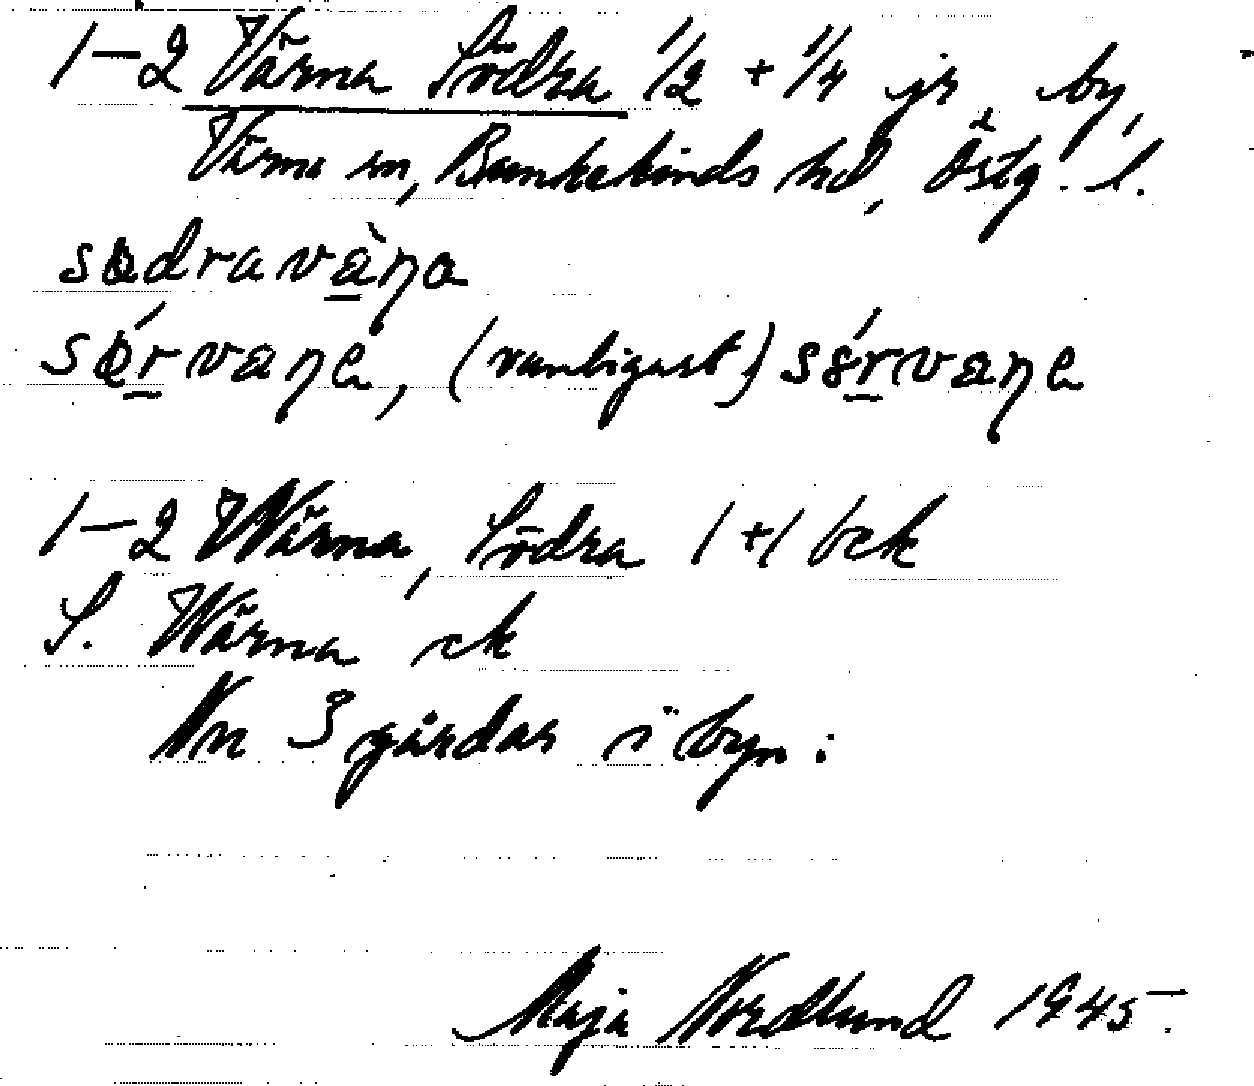 1–2 Värna Södra 1/2 + 1/4 jr, by,
Värna sn, Bankekinds hd, Östg. l.
sødravàṇa
sǿrvaṇe, (vanligast) sórvaṇe
1–2 Wärna, Södra 1+1 bck
S. Wärna ck
Nn 3 gårdar i byn.
Maja Nordlund 1945.